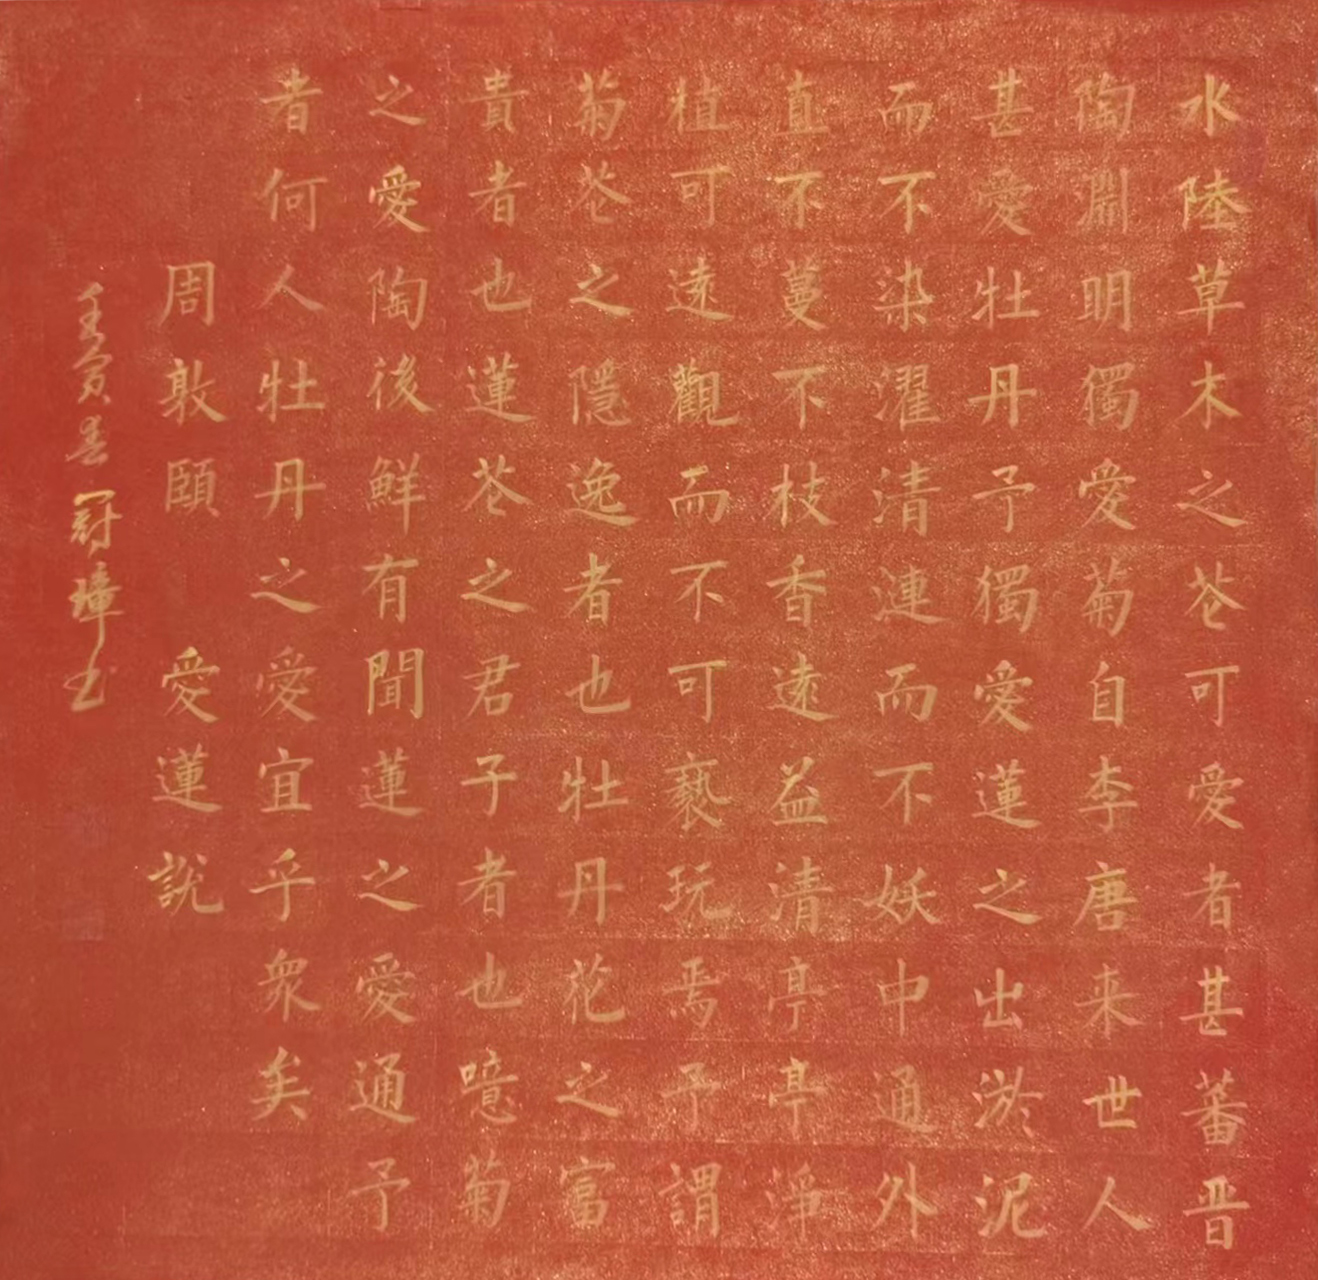 水陸草木之花可愛者甚蕃晋
陶淵明獨愛菊自李唐来世人
甚愛牡丹予獨愛蓮之出淤泥
而不染濯清漣而不妖中通外
直不蔓不枝香遠益清亭亭淨
植可遠觀而不可褻玩焉予謂
菊花之隱逸者也牡丹花之富
貴者也蓮花之君子者也噫菊
之愛陶後鮮有聞蓮之愛通予
者何人牡丹之愛宜乎衆矣
周敦頤 愛蓮說
壬寅春冠璋书